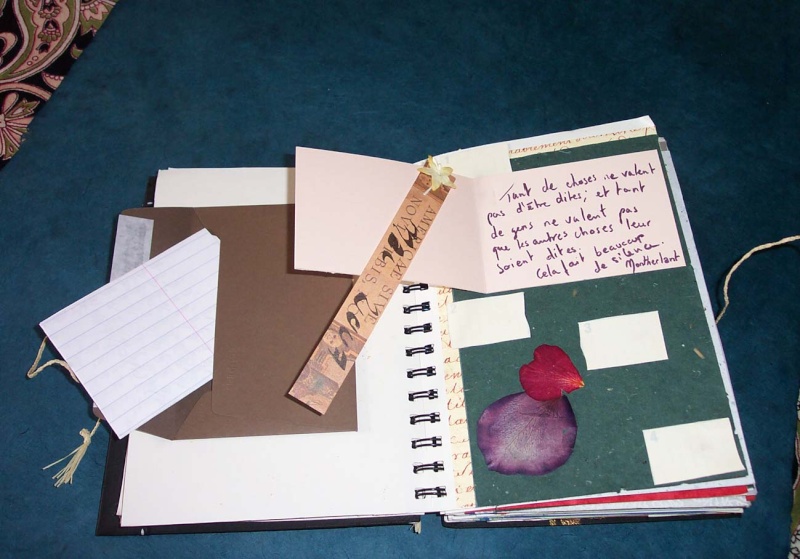 Tant de choses ne valent
pas d'être dites; et tant
de gens ne valent pas
que les autres choses leur
soient dites.
Cela fait beaucoup
de silence.
Montherlant
AMERICAE SIVE
NOVI
BIS